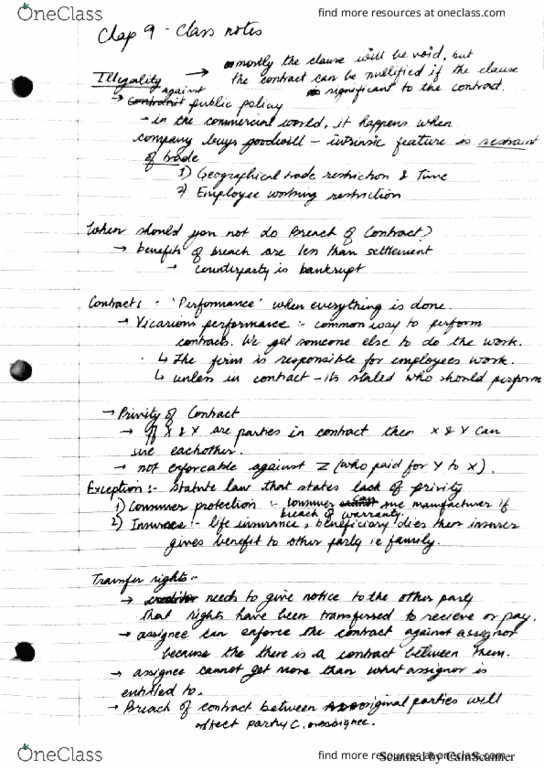 OneClass
find more resources at oneclass.com
Chap 9 - Class notes
→ mostly the clause will be void, but
Illegality the contract can be nullified if the clause
against is significant to the contract.
→ public policy
- in the commercial world, it happens when
company buys goodwill - intrinsic feature is restraint
of trade
1) Geographical trade restriction & Time
2) Employee working restriction
When should you not do Breach of Contract?
→ benefits of breach are less than settlement
→ counterparty is bankrupt
Contracts : 'Performance' when everything is done.
→ Vicarious performance :- common way to perform
contracts. We get someone else to do the work.
↳ The firm is responsible for employees work.
↳ unless in contract - its stated who should perform
→ Privity of Contract
→ If X & Y are parties in contract then X & Y can
sue eachother.
→ not enforcable against Z (who paid for Y to X).
Exception :- Statute law that states lack of privity
1) Consumer protection :- consumer can sue manufacturer if
breach of warranty.
2) Insurance :- life insurance, beneficiary dies then insurer
gives benefit to other party ie family.
Transfer rights :-
→ needs to give notice to the other party
that rights have been transferred to recieve or pay.
→ assignee can enforce the contract against assignor
because the there is a contract between them.
→ assignee cannot get more than what assignor is
entitled to.
→ Breach of contract between original parties will
effect party C. assignee.
OneClass
find more resources at oneclass.com
Scanned by CamScanner